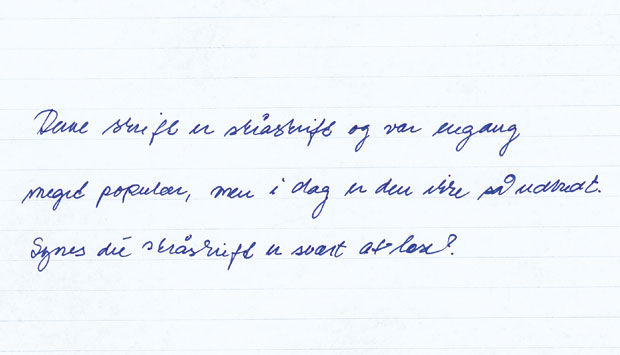 Denne skrift er skråskrift og var engang
meget populær, men i dag er den ikke så udbredt.
Synes du skråskrift er svært at læse?